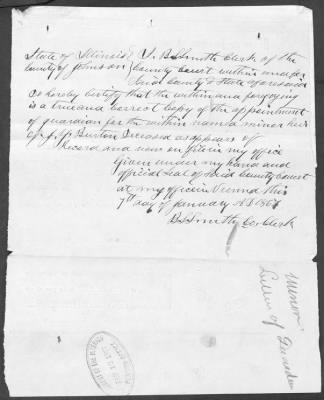 State of Illinois
County of Johnson
I. B S Smith Clerk of the
County Court within and for
said County & State aforesaid
Do hereby certify that the within and forgoing
is a true and correct copy of the appointment
of guardian for the within named minor heir
of J. H Burton Deceased as appears of
Record and now on file in my office
Given under my hand and
official Seal of said County Court
at my office in Vienna this
7th day of January AD 186
B S Smith Co Clerk
Minor
Letters of